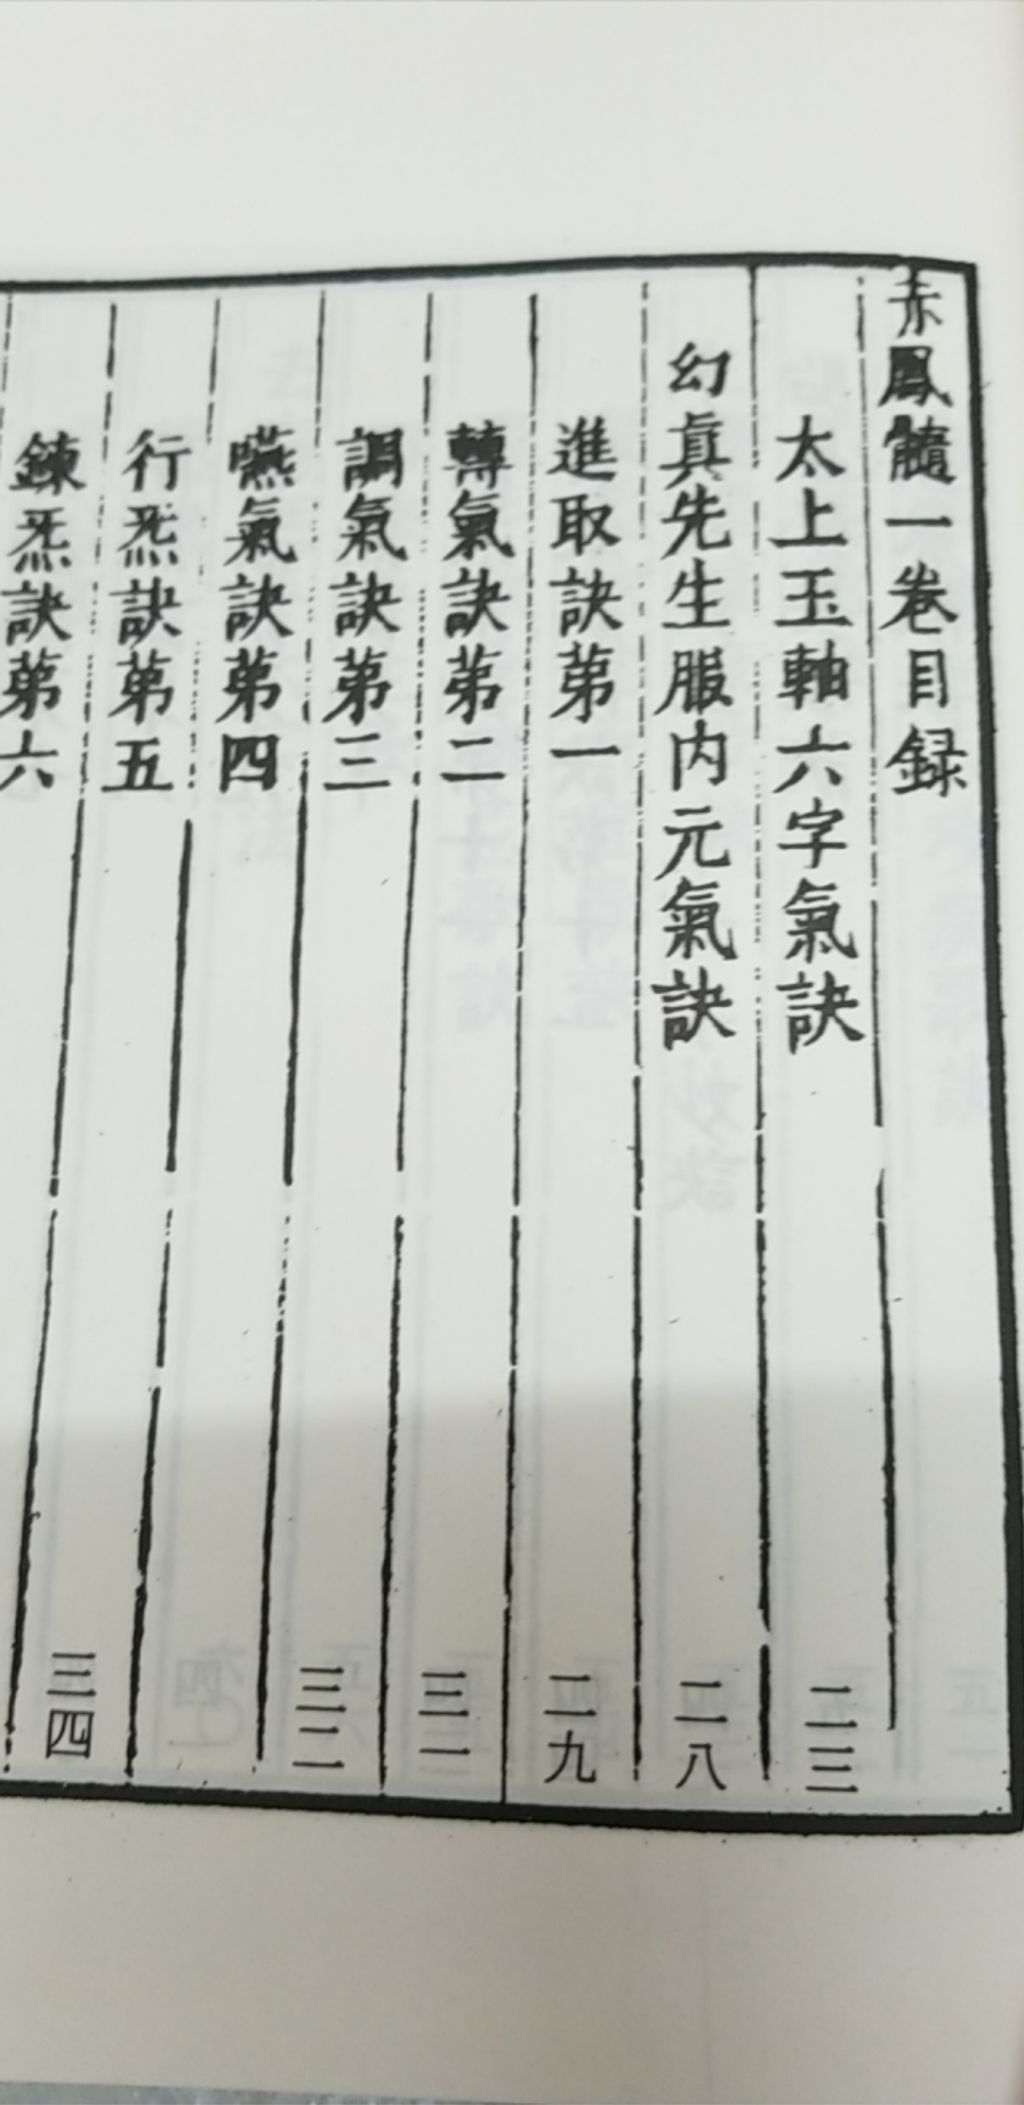 赤鳳髓一卷目録
太上玉軸六字氣訣 二三
幻真先生服内元氣訣 二八
進取訣苐一 二九
轉氣訣苐二 三一
調氣訣苐三 三二
嚥氣訣苐四
行炁訣苐五 三四
鍊炁訣苐六